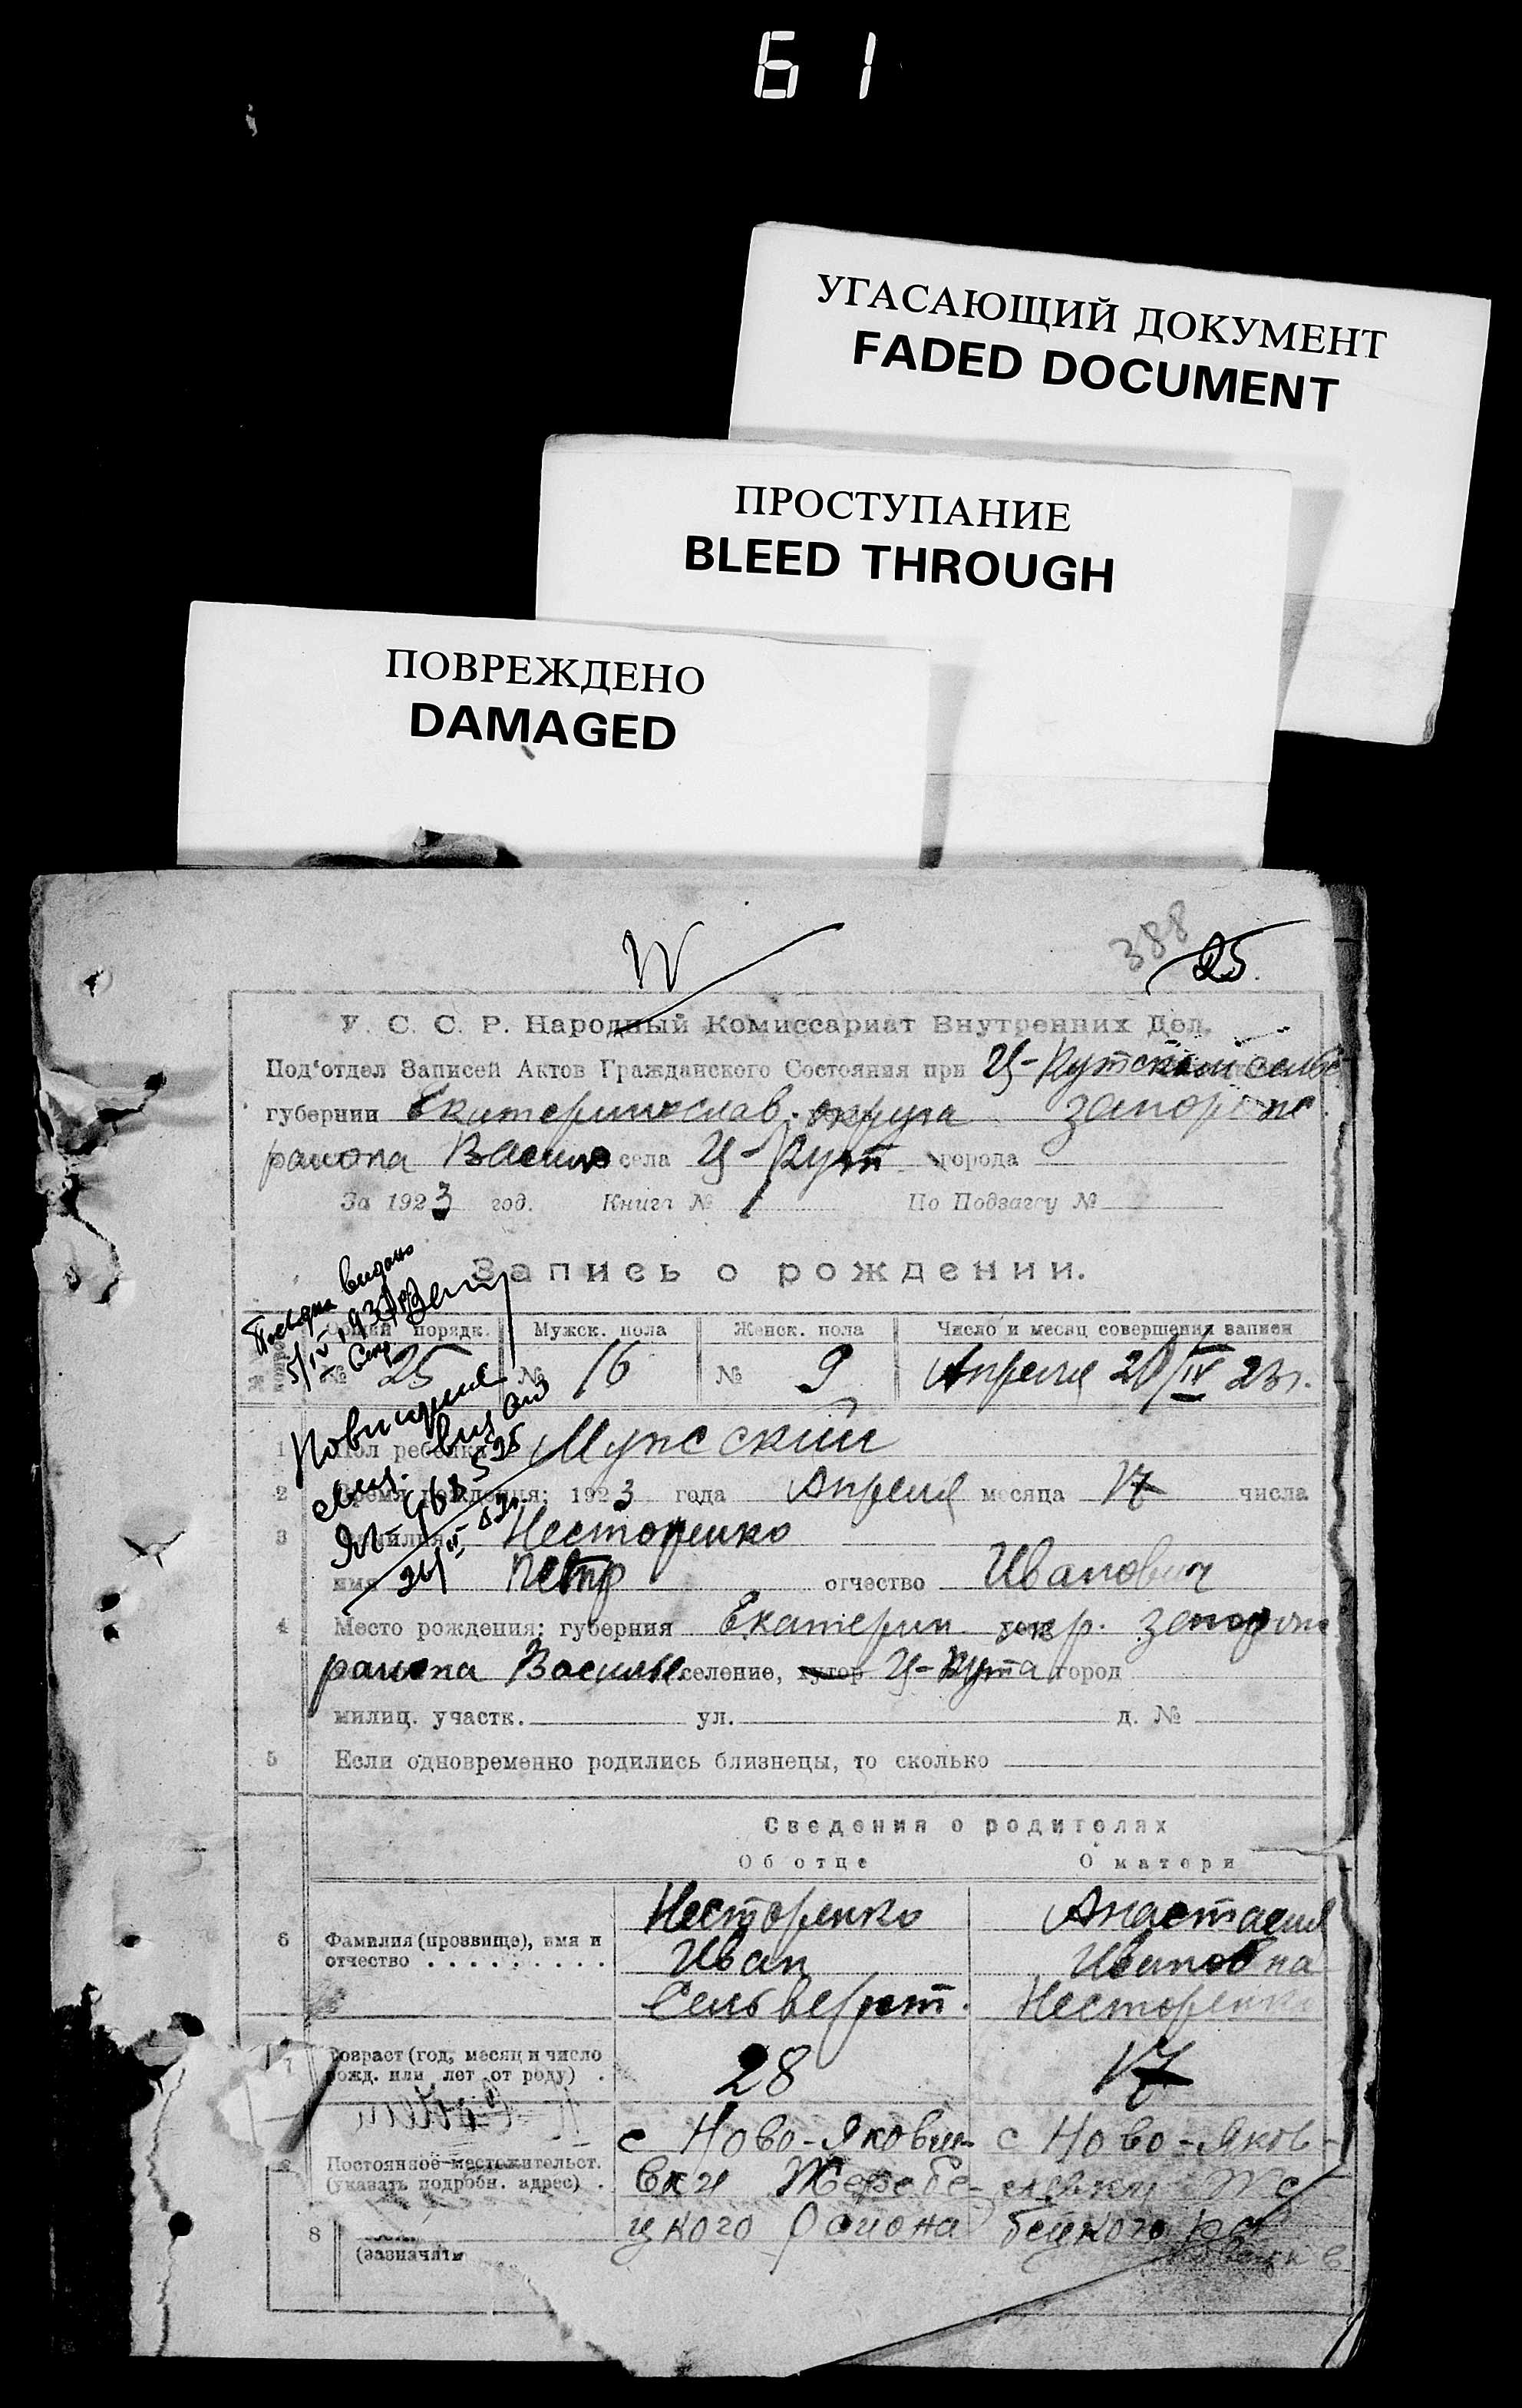 61
УГАСАЮЩИЙ ДОКУМЕНТ
FADED DOCUMENT
ПРОСТУПАНИЕ
BLEED THROUGH
ПОВРЕЖДЕНО
DAMAGED
388
25.
У. С. С. Р. Народный Комиссариат Внутренних Дел.
Под'отдел Записей Актов Гражданского Состояния при Ц-Кутском сель
губернии Екатеринослав. округа Запорож.
района Василь села Ц-Кут города
За 1923 год. Книга № 1 По Подзагсу №
Запись о рождении.
выдано
Общий порядк. Мужск. пола Женск. пола Число и месяц совершения записи
№ 25 № 16 № 9 Апреля 20/IV 23г.
1 Пол ребенка Мужской
2 Время рождения: 1923 года Апреля месяца 17 числа
3 Фамилия Несторенко
имя Петр отчество Иванович
4 Место рождения: губерния Екатерин. окр. Запорож
района Василь селение, хутор Ц-Кута город
милиц. участк. ул. д. №
5 Если одновременно родились близнецы, то сколько
Сведения о родителях
Об отце О матери
6 Фамилия (прозвище), имя и отчество Несторенко Анастасия
Иван Ивановна
Сельверст. Несторенко
7 Возраст (год, месяц и число рожд. или лет от роду) 28 17
Постоянное местожительст. (указать подробн. адрес) с Ново-Яковли- с Ново-Яков-
вки Жеребе- левки Же
цкого района бецкого
8
(означить